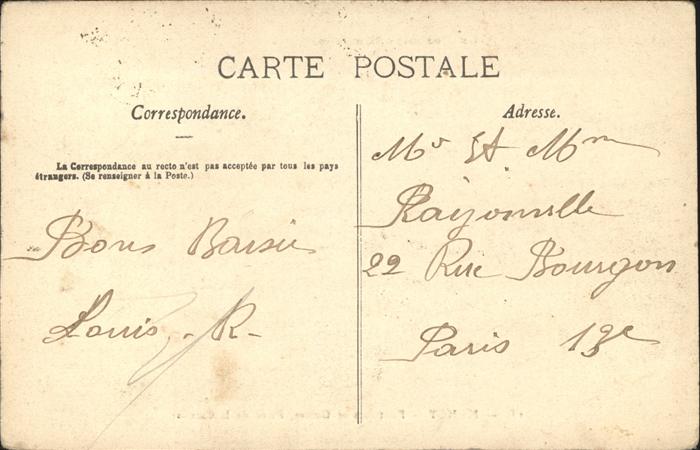 CARTE POSTALE
Correspondance.
La Correspondance au recto n'est pas acceptée par tous les pays
étrangers. (Se renseigner à la Poste.)
Bons Baisers
Louis. R-
Adresse.
Mr Et Mme
Rayonville
22 Rue Bourgon
Paris 13e